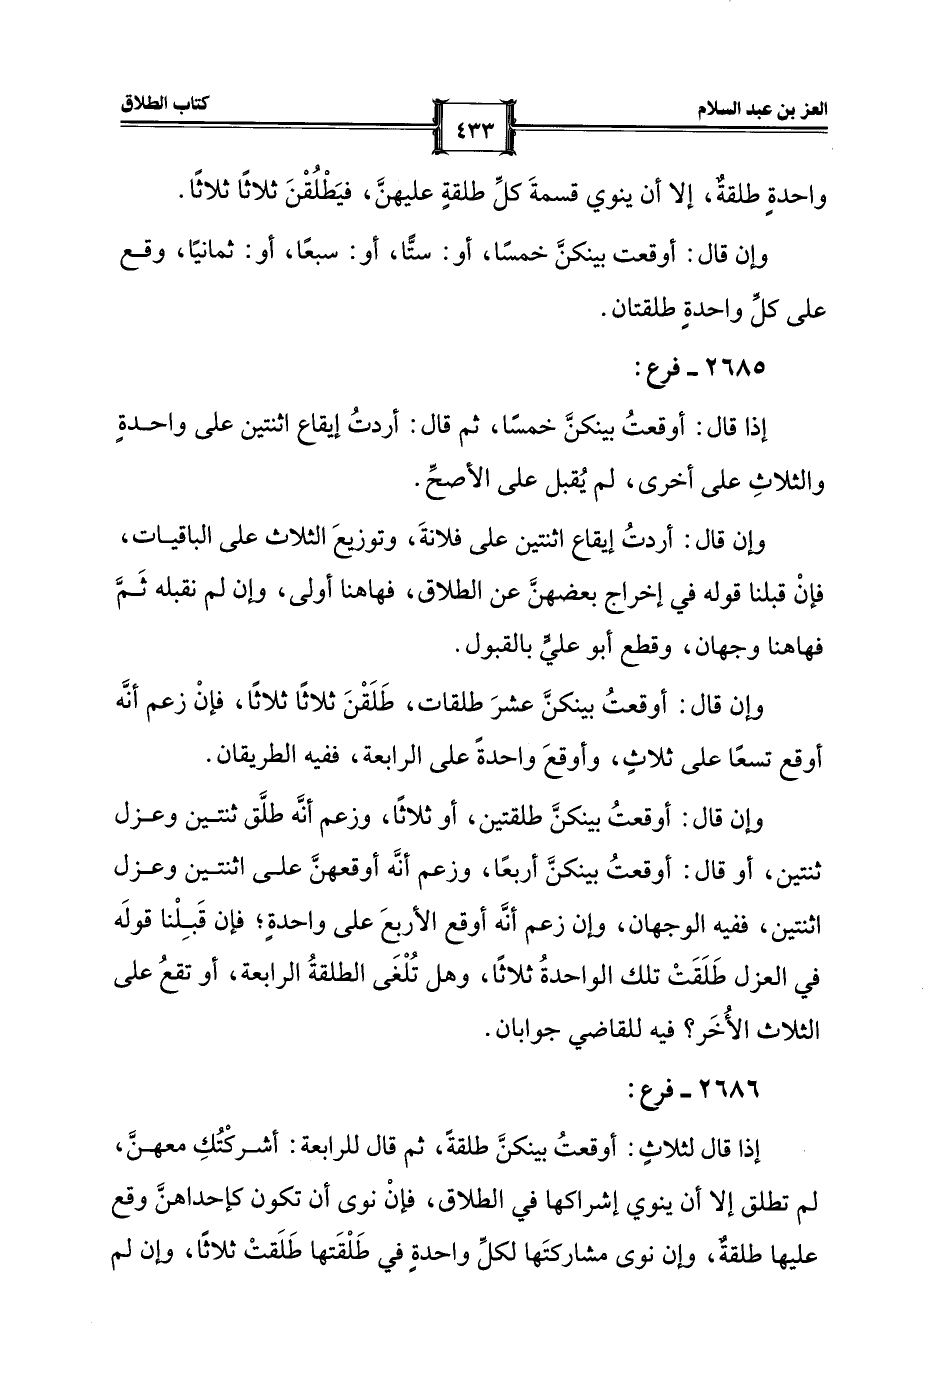 العز بن عبد السلام
٤٣٣
كتاب الطلاق
واحدةٍ طلقةٌ، إلا أن ينوي قسمةَ كلِّ طلقةٍ عليهنَّ، فيَطْلُقْنَ ثلاثًا ثلاثًا.
وإن قال: أوقعت بينكنَّ خمسًا، أو: ستًّا، أو: سبعًا، أو: ثمانيًا، وقع
على كلِّ واحدةٍ طلقتان.
٢٦٨٥ ـ فرع:
إذا قال: أوقعتُ بينكنَّ خمسًا، ثم قال: أردتُ إيقاع اثنتين على واحدةٍ
والثلاثِ على أخرى، لم يُقبل على الأصحِّ.
وإن قال: أردتُ إيقاع اثنتين على فلانةَ، وتوزيعَ الثلاث على الباقيات،
فإنْ قبلنا قوله في إخراج بعضهنَّ عن الطلاق، فهاهنا أولى، وإن لم نقبله ثَمَّ
فهاهنا وجهان، وقطع أبو عليٍّ بالقبول.
وإن قال: أوقعتُ بينكنَّ عشرَ طلقات، طَلَقْنَ ثلاثًا ثلاثًا، فإنْ زعم أنَّه
أوقع تسعًا على ثلاثٍ، وأوقعَ واحدةً على الرابعة، ففيه الطريقان.
وإن قال: أوقعتُ بينكنَّ طلقتين، أو ثلاثًا، وزعم أنَّه طلَّق ثنتين وعزل
ثنتين، أو قال: أوقعتُ بينكنَّ أربعًا، وزعم أنَّه أوقعهنَّ على اثنتين وعزل
اثنتين، ففيه الوجهان، وإن زعم أنَّه أوقع الأربعَ على واحدةٍ؛ فإن قَبِلْنا قولَه
في العزل طَلَقَتْ تلك الواحدةُ ثلاثًا، وهل تُلْغَى الطلقةُ الرابعة، أو تقعُ على
الثلاث الأُخَر؟ فيه للقاضي جوابان.
٢٦٨٦ ـ فرع:
إذا قال لثلاثٍ: أوقعتُ بينكنَّ طلقةً، ثم قال للرابعة: أشركْتُكِ معهنَّ،
لم تطلق إلا أن ينوي إشراكها في الطلاق، فإنْ نوى أن تكون كإحداهنَّ وقع
عليها طلقةٌ، وإن نوى مشاركتَها لكلِّ واحدةٍ في طَلْقَتها طَلَقتْ ثلاثًا، وإن لم